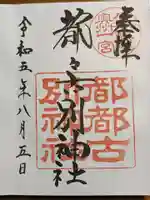 奉拝
都々古別神社
都都古
別神社
令和五年八月五日